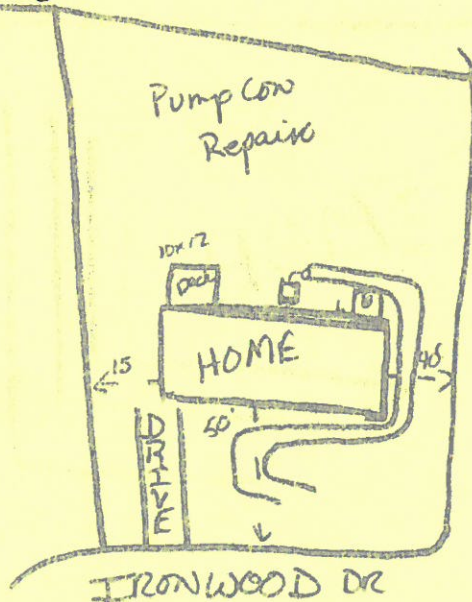 Pump Con
Repair
10x12
Deck
HOME
15
40'
50'
DRIVE
IRONWOOD DR